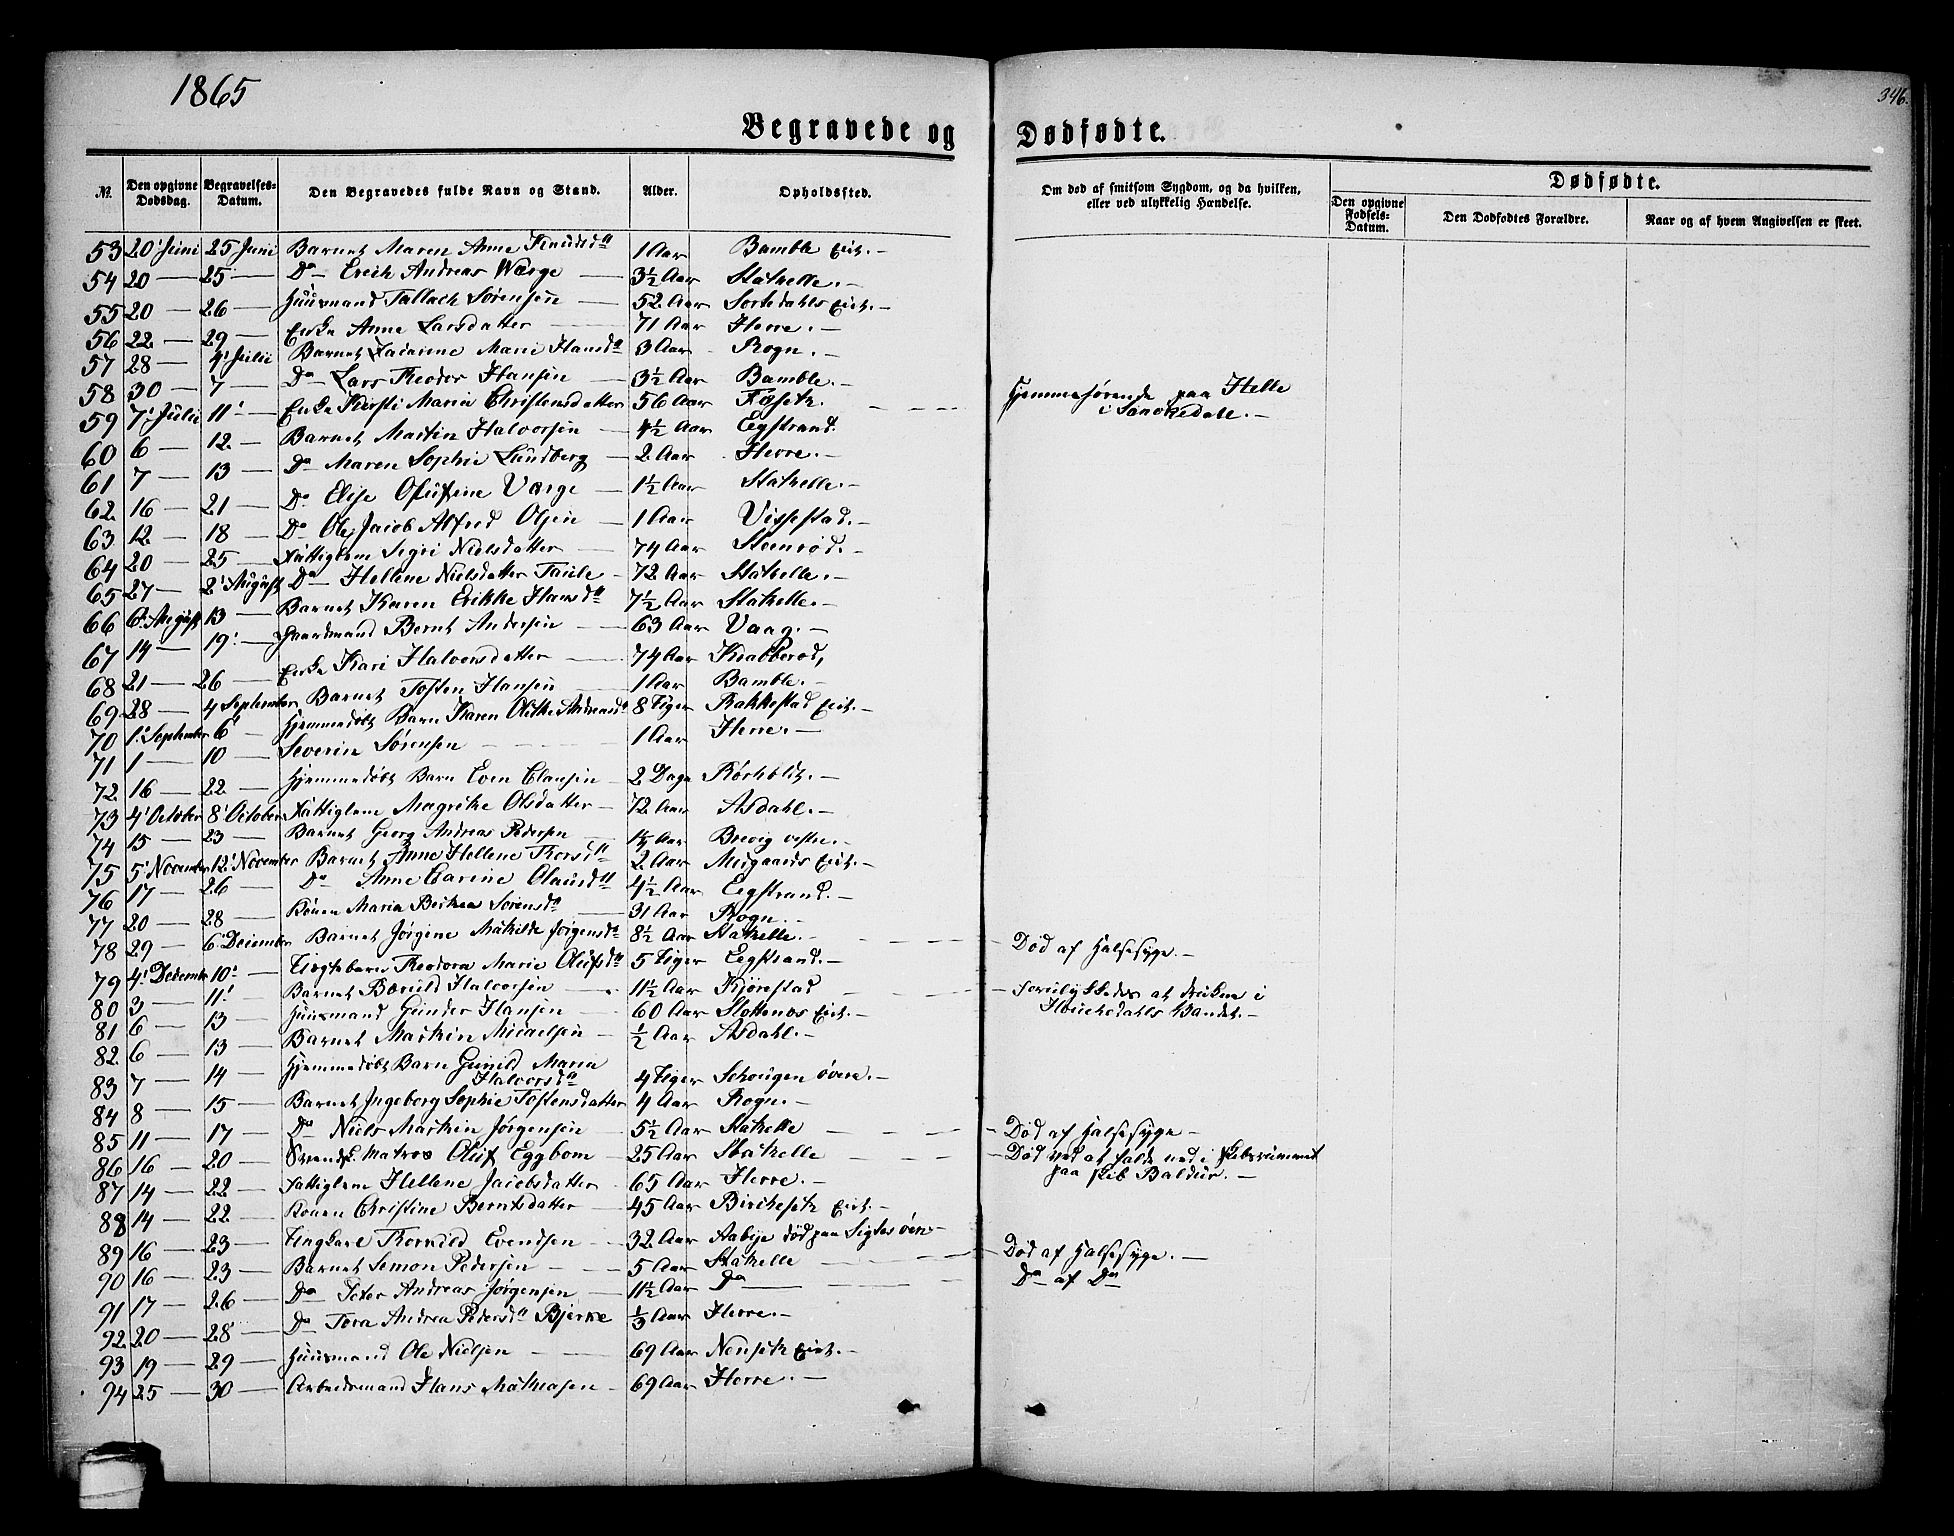 1865
346.
Begravede og Dødfødte.
№. Den opgivne Dødsdag. Begravelses-Datum. Den Begravedes fulde Navn og Stand. Alder. Opholdssted. Om død af smitsom Sygdom, og da hvilken, eller ved ulykkelig Hændelse. Dødfødte. Den opgivne Fødsels-Datum. Den Dødfødtes Forældre. Naar og af hvem Angivelsen er skeet.
53 20' Juni 25 Juni Barnet Maren Anne Knudsdtr 1 Aar Bamble Eiet.
54 20 — 25 — Do Erich Andreas Værge — 3½ Aar Stathelle.
55 20 — 26 — Huusmand Tallach Sørensen — 52 Aar Sortedahls Eiet.
56 22 — 29 — Enke Anne Larsdatter — 71 Aar Herre.
57 28 — 4' Julii Barnet Marie Hansdtr 3 Aar Rogn.
58 30 — 7 — Do Lars Theodor Hansen — 3½ Aar Bamble.
59 7' Julii 11' — Enke Kirsti Maria Christensdatter 56 Aar Fæseth. — Hjemmehørende paa Helle
i Sanikedahl.
60 6 — 12 — Barnet Martin Halvorsen — 4½ Aar Eegstrand.
61 7 — 13 — Do Maren Sophie Lundberg — 2 Aar Herre.
62 16 — 21 — Do Elise Olufine Værge — 1½ Aar Stathelle.
63 12 — 18 — Do Ole Jacob Alfred Olsen — 1 Aar Vissestad.
64 20 — 25 — Fattiglem Segri Nielsdatter — 74 Aar Steenrød.
65 27 — 2' August Do Hellene Nielsdatter Taule — 72 Aar Stathelle.
66 6' August 13 — Barnet Karen Erikke Hansdtr 7½ Aar Stathelle.
67 14 — 19' — Gaardmand Bernt Andersen — 63 Aar Vaag.
68 21 — 26 — Enke Kari Halvorsdatter — 74 Aar Krabberød,
69 28 — 4 September Barnet Tosten Hansen 1 Aar Bamble.
70 1' September 6' Hjemmedøbt Barn Karen Olethe Andreasdtr 8 Uger Rakkestad Eiet.
71 1 — 10 — Severin Sørensen — 1 Aar Herre.
72 16 — 22 — Hjemmedøbt Barn Even Clausen — 2 Dage Rørholdt.
73 4' October 8' October Fattiglem Magrethe Olsdatter — 72 Aar Asdahl.
74 15 — 23 — Barnet Georg Andreas Pedersen — Aar Brevig vestre.
75 5' November 12' November Barnet Anne Hellene Thorsdtr 2 Aar Eiet.
76 17 — 26 — Do Anne Carine Olausdtr 4½ Aar Eegstrand.
77 20 — 28 — Konen Maria Bertea Sørensdtr — 31 Aar Rogn.
78 29 — 6' December Barnet Jørgine Mathilde Jørgensdtr 8½ Aar Stathelle. — Død af Halsesyge.
79 4' December 10' — Uægtebarn Theodora Marie Olufsdtr 5 Uger Eegstrand.
80 3 — 11' — Barnet Bæruld Halvorsen — 11½ Aar Kjørestad — forulykkedes at drukne i
Vandet.
81 6 — 13 — Huusmand Gunder Hansen — 60 Aar Slottenos Eiet.
82 6 — 13 — Barnet Martin Micaelsen — ½ Aar Asdahl.
83 7 — 14 — Hjemmedøbt Barn Gunild Maria
Halvorsdtr 4 Uger Schougen øvre.
84 8 — 15 — Barnet Ingeborg Sophie Tostensdatter 4 Aar Rogn.
85 11 — 17 — Do Niels Martin Jørgensen — 5½ Aar Stathelle — Død af Halsesyge
86 16 — 20 — Matros Oluf Eggbom — 25 Aar Stathelle — Død ved at falde ned i Skibsrummet
paa Skib Baldur.
87 14 — 22 — Fattiglem Hellene Jacobsdatter — 65 Aar Herre.
88 14 — 22 — Konen Christine Berntsdatter — 45 Aar Birchseth Eiet.
89 16 — 23 — Ungkarl Thorkild Evendsen — 32 Aar Aabye død paa Sigtesøen
90 16 — 23 — Barnet Semon Pedersen — 5 Aar Stathelle — Død af Halsesyge.
91 17 — 26 — Do Peter Andreas Jørgensen — 11½ Aar Do — Do af Do
92 20 — 28 — Do Tora Andrea Pedersdtr Bjerke ⅓ Aar Herre.
93 19 — 29 — Huusmand Ole Nielsen — 69 Aar Nenseth Eiet.
94 25 — 30 — Arbeidsmand Hans Mathiasen — 69 Aar Herre.